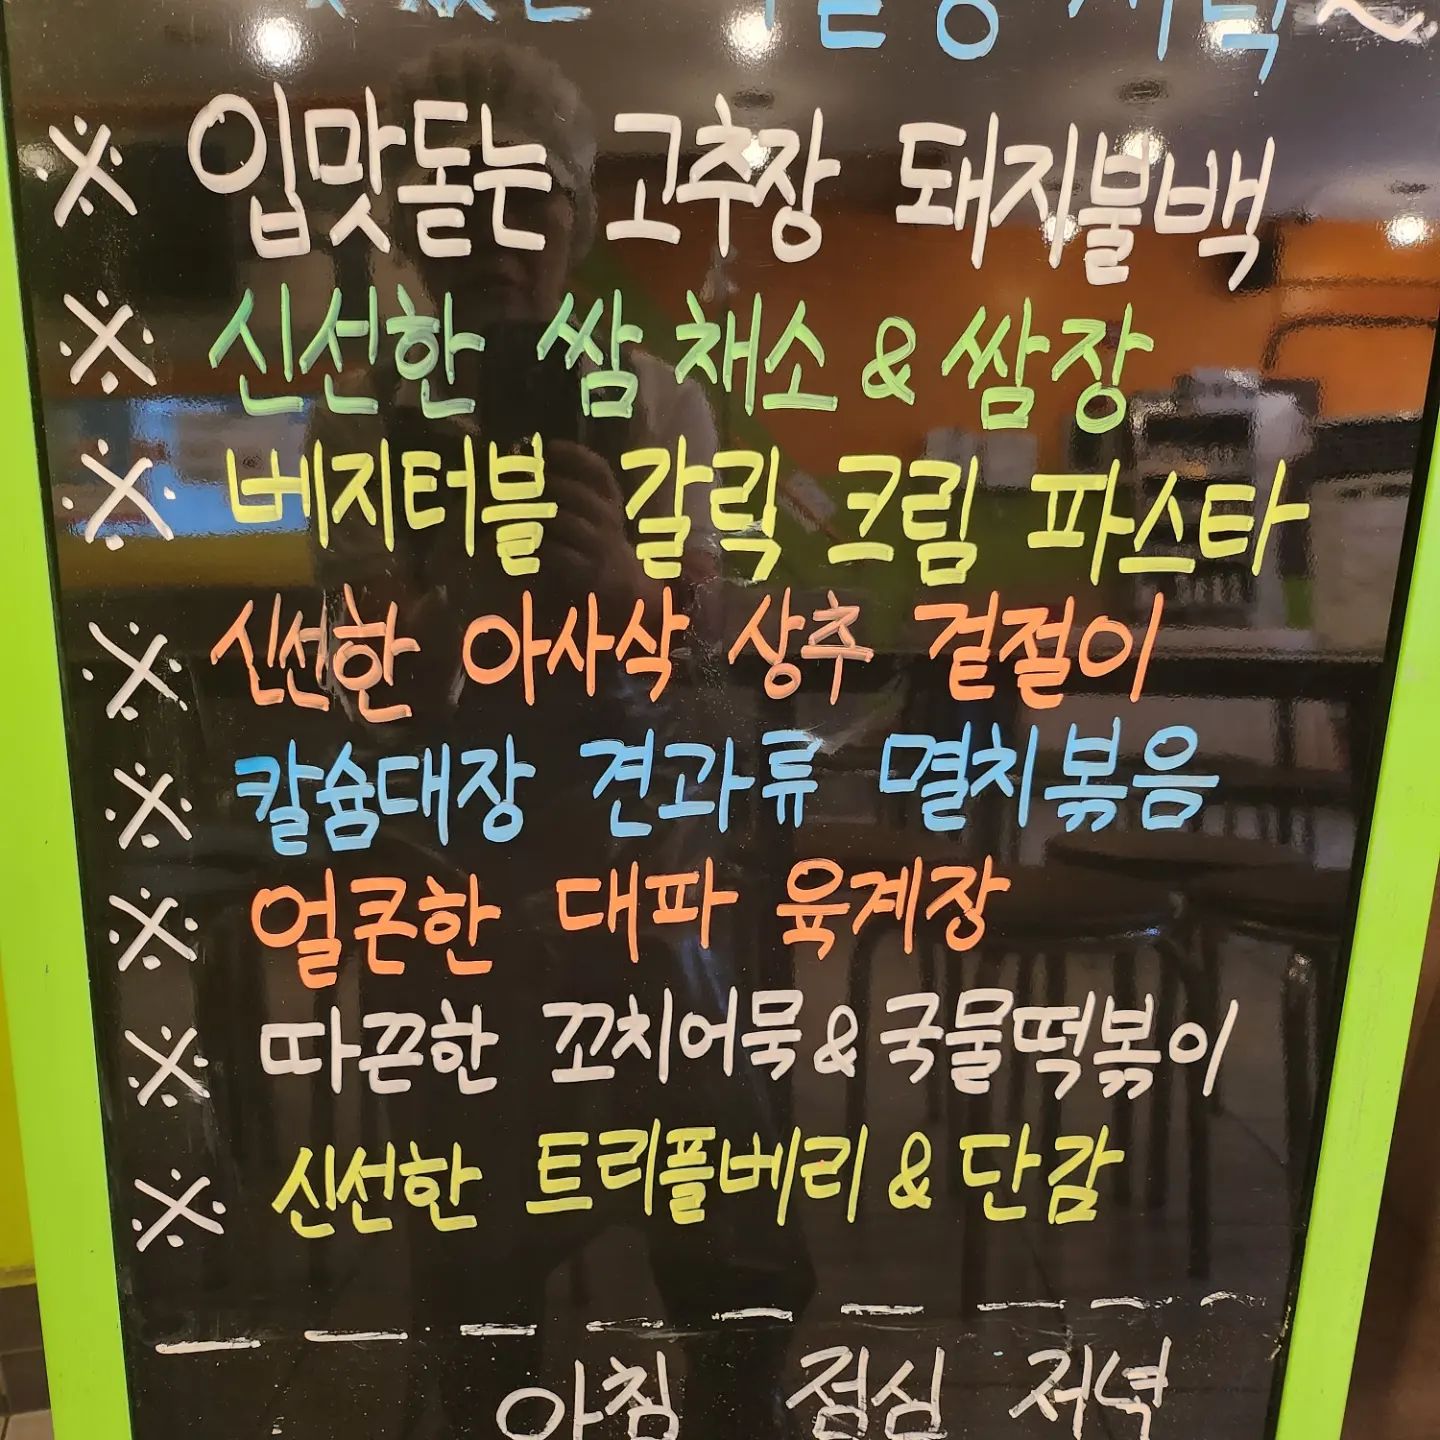 ※ 입맛돋는 고추장 돼지불백
※ 신선한 쌈채소 & 쌈장
※ 베지터블 갈릭 크림 파스타
※ 신선한 아사삭 상추 겉절이
※ 칼슘대장 견과류 멸치볶음
※ 얼큰한 대파 육계장
※ 따끈한 꼬치어묵 & 국물떡볶이
※ 신선한 트리플베리 & 단감
아침 점심 저녁